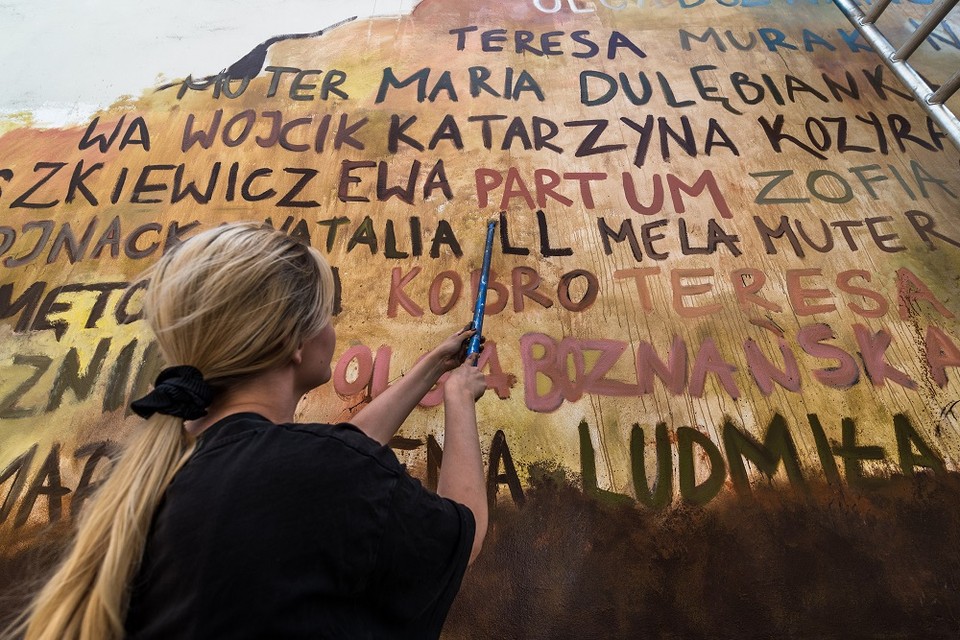 TERESA MURAK
MUTER MARIA DULĘBIANK
WA WOJCIK KATARZYNA KOZYRA
SZKIEWICZ EWA PARTUM ZOFIA
OJNACK NATALIA LL MELA MUTER
KOBRO TERESA
OLGA BOZNAŃSKA
LUDMIŁA